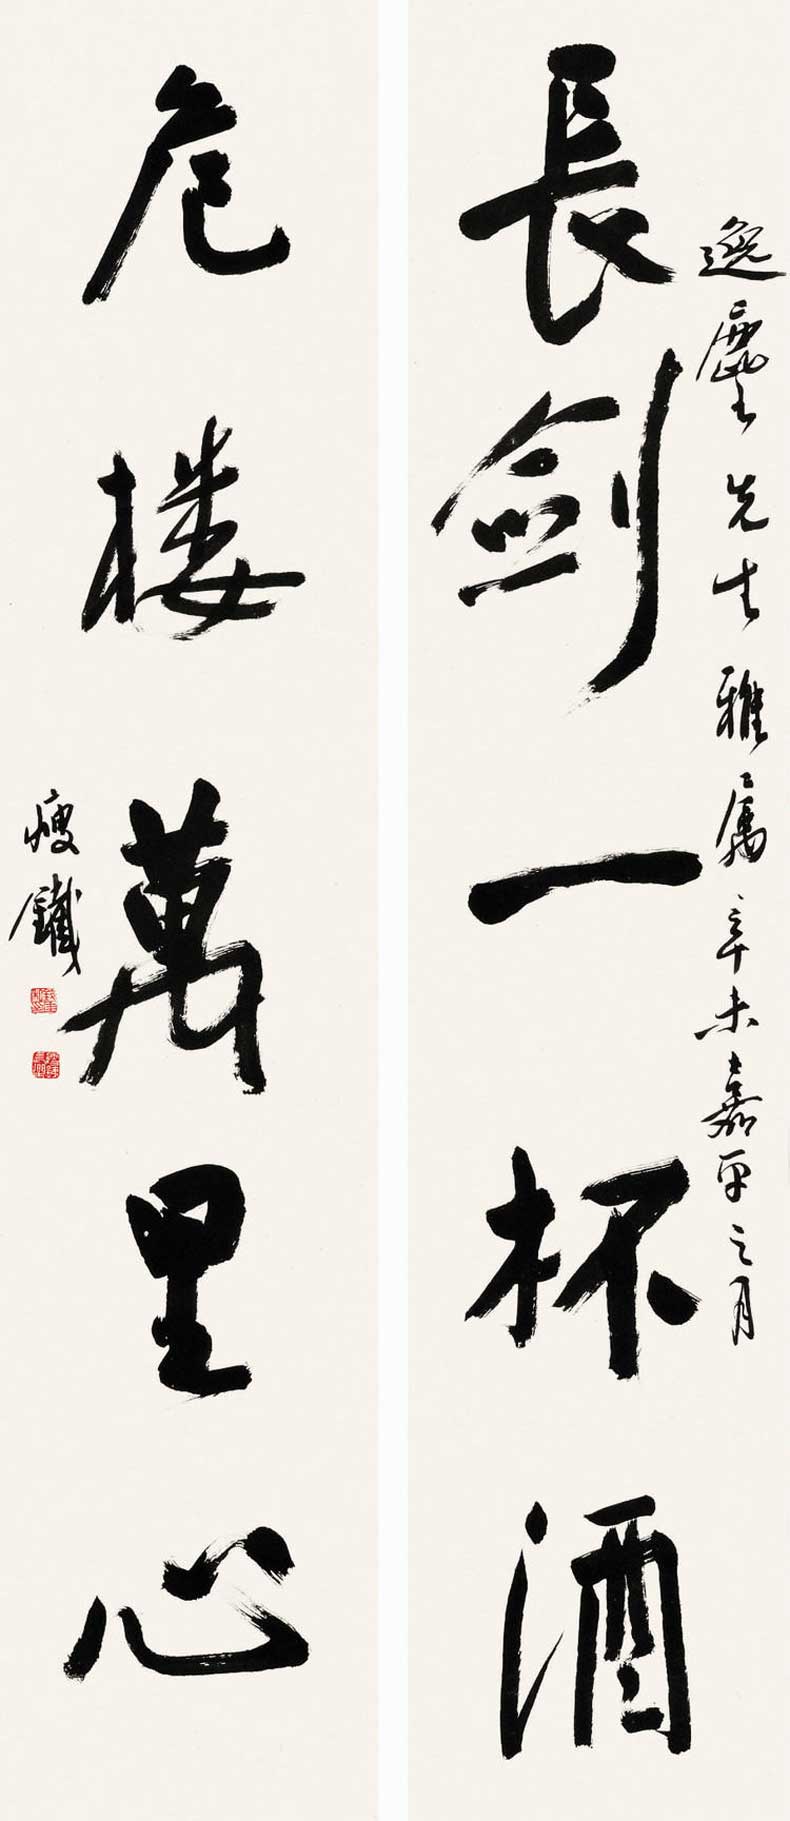 逸塵先生雅属辛未嘉平之月
長劍一杯酒
危楼萬里心
瘦鐵